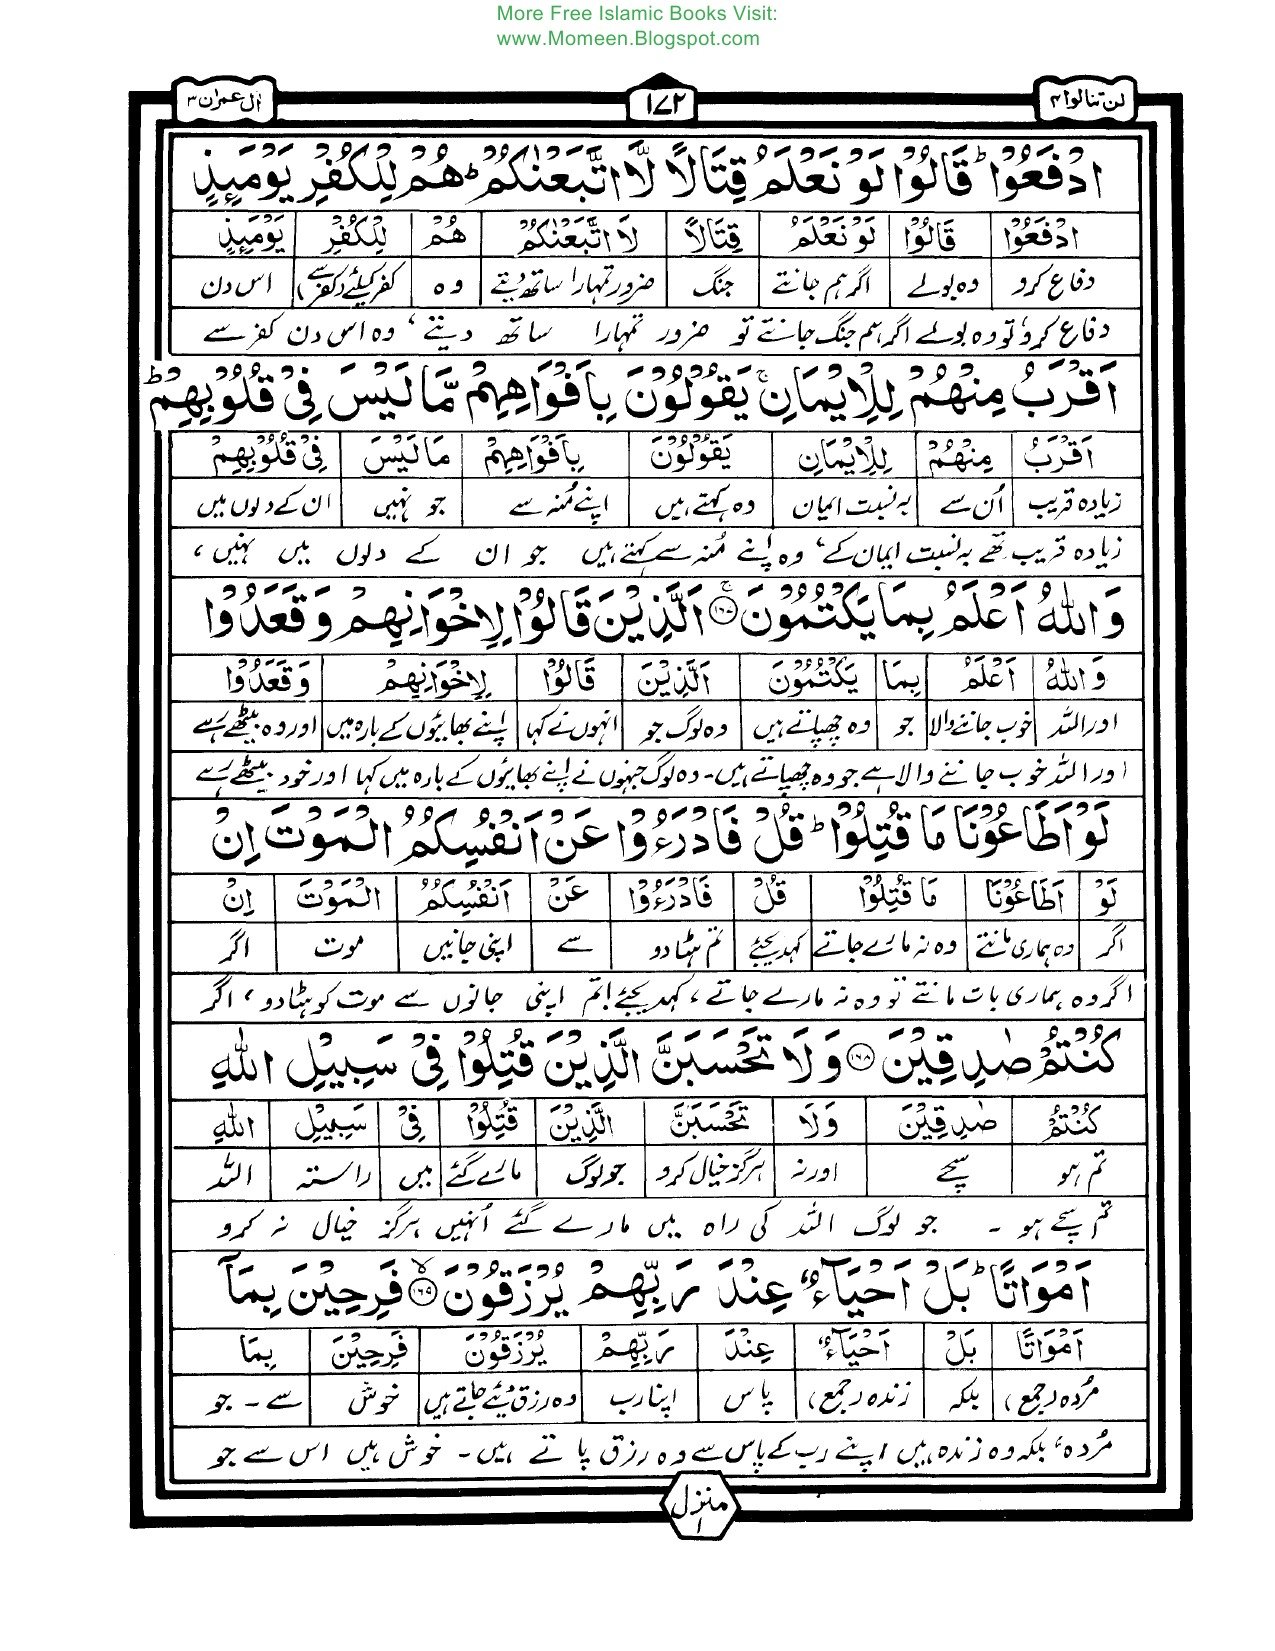 More Free Islamic Books Visit:
www.Momeen.Blogspot.com
لن تنالوا ۴ ۱۷۲ اٰل عمران ۳
ادْفَعُوْا ؕ قَالُوْا لَوْ نَعْلَمُ قِتَالًا لَّا اتَّبَعْنٰكُمْ ؕ هُمْ لِلْكُفْرِ یَوْمَىِٕذٍ
ادْفَعُوْا قَالُوْا لَوْ نَعْلَمُ قِتَالًا لَا اتَّبَعْنٰكُمْ هُمْ لِلْكُفْرِ یَوْمَىِٕذٍ
دفاع کرو وہ بولے اگر ہم جانتے جنگ ضرور تمہارا ساتھ دیتے وہ کفر کیلئے (کفر سے) اس دن
دفاع کرو، تو وہ بولے اگر ہم جنگ جانتے تو ضرور تمہارا ساتھ دیتے، وہ اس دن کفر سے
اَقْرَبُ مِنْهُمْ لِلْاِیْمَانِ ۚ یَقُوْلُوْنَ بِاَفْوَاهِهِمْ مَّا لَیْسَ فِیْ قُلُوْبِهِمْ ؕ
اَقْرَبُ مِنْهُمْ لِلْاِیْمَانِ یَقُوْلُوْنَ بِاَفْوَاهِهِمْ مَا لَیْسَ فِیْ قُلُوْبِهِمْ
زیادہ قریب اُن سے بہ نسبت ایمان وہ کہتے ہیں اپنے مُنہ سے جو نہیں ان کے دلوں میں
زیادہ قریب تھے بہ نسبت ایمان کے، وہ اپنے مُنہ سے کہتے ہیں جو ان کے دلوں میں نہیں،
وَاللّٰهُ اَعْلَمُ بِمَا یَكْتُمُوْنَ ۚ ﴿۱۶۷﴾ اَلَّذِیْنَ قَالُوْا لِاِخْوَانِهِمْ وَقَعَدُوْا
وَاللّٰهُ اَعْلَمُ بِمَا یَكْتُمُوْنَ اَلَّذِیْنَ قَالُوْا لِاِخْوَانِهِمْ وَقَعَدُوْا
اور اللہ خوب جاننے والا جو وہ چھپاتے ہیں وہ لوگ جو انہوں نے کہا اپنے بھائیوں کے بارہ میں اور وہ بیٹھے رہے
اور اللہ خوب جاننے والا ہے جو وہ چھپاتے ہیں۔ وہ لوگ جنہوں نے اپنے بھائیوں کے بارہ میں کہا اور خود بیٹھے رہے
لَوْ اَطَاعُوْنَا مَا قُتِلُوْا ؕ قُلْ فَادْرَءُوْا عَنْ اَنْفُسِكُمُ الْمَوْتَ اِنْ
لَوْ اَطَاعُوْنَا مَا قُتِلُوْا قُلْ فَادْرَءُوْا عَنْ اَنْفُسِكُمُ الْمَوْتَ اِنْ
اگر وہ ہماری مانتے وہ نہ مارے جاتے کہدیجئے تم ہٹا دو سے اپنی جانیں موت اگر
اگر وہ ہماری بات مانتے تو وہ نہ مارے جاتے، کہدیجئے! تم اپنی جانوں سے موت کو ہٹا دو، اگر
كُنْتُمْ صٰدِقِیْنَ ﴿۱۶۸﴾ وَلَا تَحْسَبَنَّ الَّذِیْنَ قُتِلُوْا فِیْ سَبِیْلِ اللّٰهِ
كُنْتُمْ صٰدِقِیْنَ وَلَا تَحْسَبَنَّ الَّذِیْنَ قُتِلُوْا فِیْ سَبِیْلِ اللّٰهِ
تم ہو سچے اور نہ ہرگز خیال کرو جو لوگ مارے گئے میں راستہ اللہ
تم سچے ہو ۔ جو لوگ اللہ کی راہ میں مارے گئے اُنہیں ہرگز خیال نہ کرو
اَمْوَاتًا ؕ بَلْ اَحْیَآءٌ عِنْدَ رَبِّهِمْ یُرْزَقُوْنَ ۙ ﴿۱۶۹﴾ فَرِحِیْنَ بِمَاۤ
اَمْوَاتًا بَلْ اَحْیَآءٌ عِنْدَ رَبِّهِمْ یُرْزَقُوْنَ فَرِحِیْنَ بِمَا
مُردہ (جمع) بلکہ زندہ (جمع) پاس اپنا رب وہ رزق دیئے جاتے ہیں خوش سے ۔ جو
مُردہ، بلکہ وہ زندہ ہیں اپنے رب کے پاس سے وہ رزق پاتے ہیں۔ خوش ہیں اس سے جو
منزل ۱